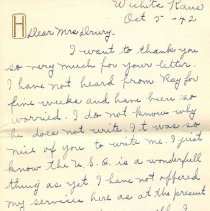 Wichita Kans
Oct 5 - 42
H
Dear Mrs Drury.
I want to thank you
so very much for your letter.
I have not heard from Ray for
five weeks and have been so
worried. I do not know why
he does not write. It was so
nice of you to write me. I just
know the U.S.O is a wonderfull
thing as yet I have not offered
my services here as at the present